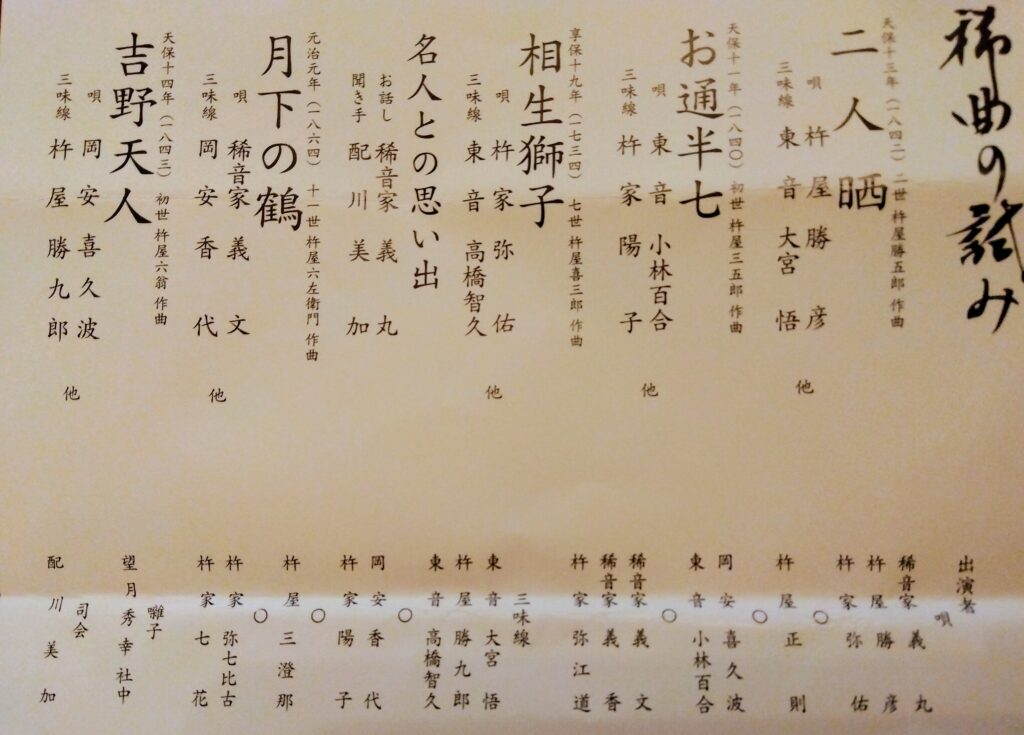 稀曲の試み
天保十三年（一八四二）二世 杵屋勝五郎 作曲
二人晒
唄 杵屋勝彦
三味線 東音 大宮悟
他
天保十一年（一八四〇）初世 杵屋三五郎 作曲
お通半七
唄 東音 小林百合
三味線 杵家陽子
他
享保十九年（一七三四）七世 杵屋喜三郎 作曲
相生獅子
唄 杵家弥佑
三味線 東音 高橋智久
他
名人との思い出
お話し 稀音家義丸
聞き手 配川美加
元治元年（一八六四）十一世 杵屋六左衛門 作曲
月下の鶴
唄 稀音家義文
三味線 岡安香代
他
天保十四年（一八四三）初世 杵屋六翁 作曲
吉野天人
唄 岡安喜久波
三味線 杵屋勝九郎
他
出演者
唄
稀音家義丸
杵屋勝彦
杵家弥佑
○
杵屋正則
○
岡安喜久波
東音 小林百合
稀音家義文
稀音家義香
杵家弥江道
三味線
東音 大宮悟
杵屋勝九郎
東音 高橋智久
○
岡安香代
杵家陽子
○
杵屋三澄那
○
杵家弥七比古
杵家七花
囃子
望月秀幸社中
司会
配川美加